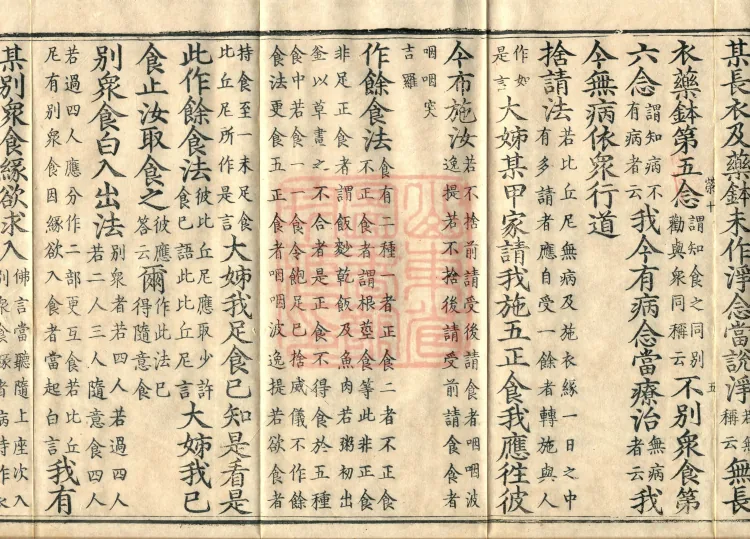 某長衣及藥鉢未作淨念當說淨若無稱云無長
榮十 五
衣藥鉢第五念謂知食之同別勸與衆同稱云不別衆食第
六念謂知病不有病者云我今有病念當療治無病者云我
今無病依衆行道
捨請法若比丘尼無病及施衣緣一日之中有多請者應自受一餘者轉施與人
作如是言大姊某甲家請我施五正食我應往彼
今布施汝若不捨前請受後請食者咽咽波逸提若不捨後請受前請食食者
咽咽突吉羅
作餘食法食有二種一者正食二者不正食不正食者謂根莖食等此非正食
非足正食者謂飯麨乾飯及魚肉若粥初出釜以草畫之不合者是正食不得食於五種
食中若食一一食令飽足已捨威儀不作餘食法更食五正食者咽咽波逸提若欲食者
持食至一未足食比丘尼所作是言大姊我足食已知是看是
此作餘食法彼比丘尼應取少許食已語此比丘尼言大姊我已
食止汝取食之彼應答云爾作此法已得隨意食
別衆食白入出法別衆食者若四人若過四人若二人三人隨意食四人
若過四人應分作二部更互食若比丘尼有別衆食因緣欲入食者當起白言我有
某別衆食緣欲求入佛言當聽隨上座次入別衆食緣者病時作衣